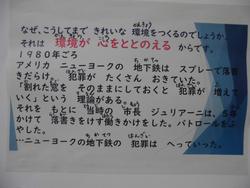 なぜ、こうしてまで きれいな 環境をつくるのでしょうか。
それは 環境が 心をととのえる からです。
1980年ごろ
アメリカ ニューヨークの 地下鉄は スプレーで落書
きだらけ 犯罪が たくさん おきていた。
「割れた窓を そのままにしておくと 犯罪が 増えて
いく」という 理論がある。
それを もとに 当時の 市長 ジュリアーニは、5年
かけて 落書きをけす働きかけをした。パトロールをふ
やした。
…ニューヨークの地下鉄の 犯罪は へっていった。